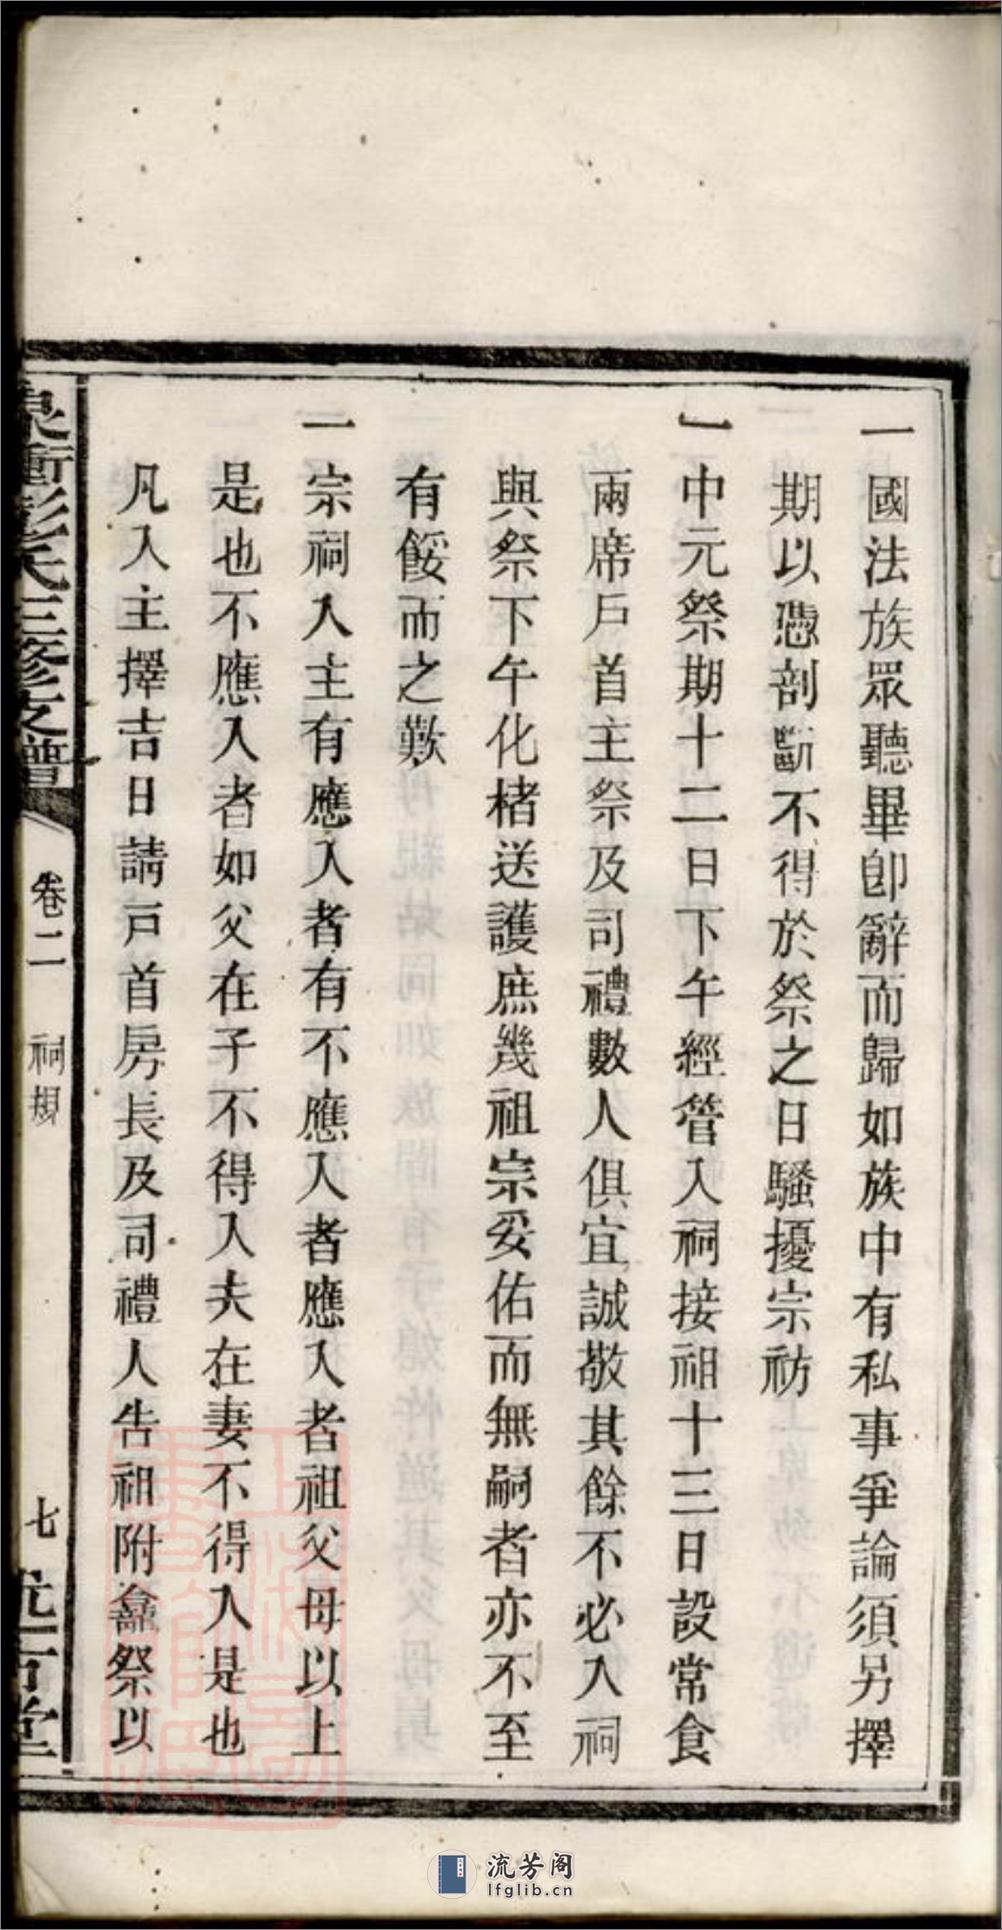 一國法族眾聽畢卽辭而歸如族中有私事爭論須另擇
期以憑剖斷不得於祭之日騷擾宗祊
一中元祭期十二日下午經管入祠接祖十三日設常食
兩席戶首主祭及司禮數人俱宜誠敬其餘不必入祠
與祭下午化楮送護庶幾祖宗妥佑而無嗣者亦不至
有餒而之歎
一宗祠入主有應入者有不應入者應入者祖父母以上
是也不應入者如父在子不得入夫在妻不得入是也
凡入主擇吉日請戶首房長及司禮人告祖附龕祭以
泉衝彭氏三修支譜
卷二
祠規
七
流芳阁
lfglib.cn